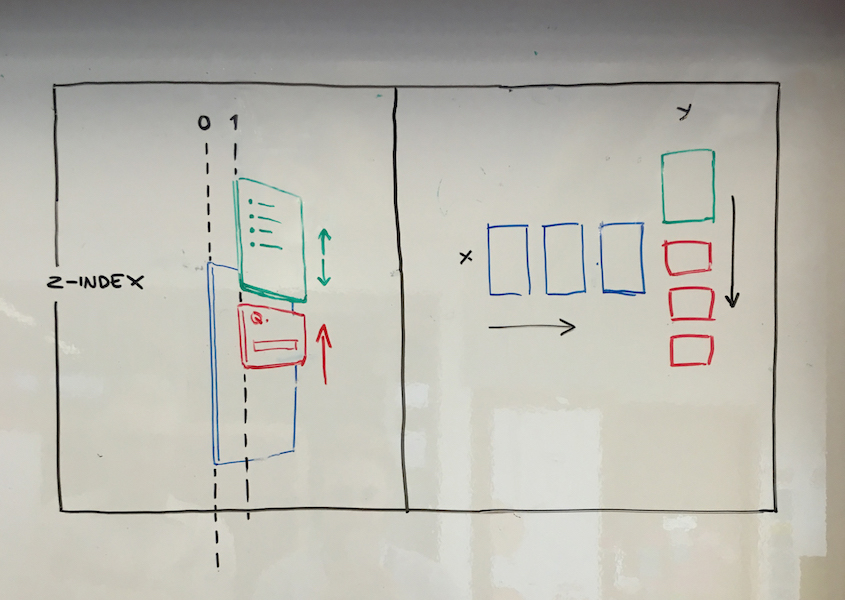 0 1
Z-INDEX
Q.
Y
X